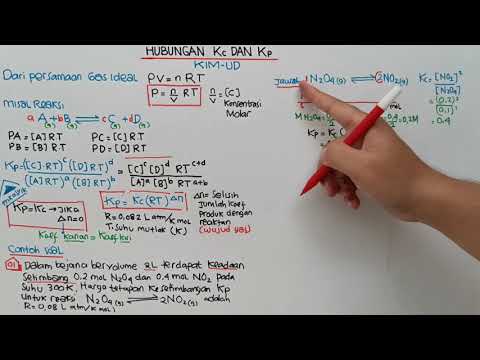 HUBUNGAN Kc DAN Kp
KIM-UD
Dari persamaan Gas Ideal PV = n RT
P = n/V RT n/V = [C]
Konsentrasi
Molar
Misal Reaksi
a A(g) + b B(g) ⇌ c C(g) + d D(g)
PA = [A] RT PC = [C] RT
PB = [B] RT PD = [D] RT
Kp = ([C]·RT)^c ([D] RT)^d / ([A] RT)^a ([B] RT)^b = [C]^c [D]^d RT^c+d / [A]^a [B]^b RT^a+b
Kp = Kc (RT)^Δn
Δn = Selisih
Jumlah Koef
Produk dengan
reaktan
(wujud gas)
Kp = Kc → jika
Δn = 0
R = 0,082 L atm/K mol
T : suhu mutlak (K)
Koef kanan = Koef kiri
Contoh soal
01 Dalam bejana bervolume 2L terdapat Keadaan
Setimbang 0.2 mol N2O4 dan 0.4 mol NO2 pada
Suhu 300K. Harga tetapan kesetimbangan Kp
Untuk reaksi N2O4(g) ⇌ 2NO2(g) adalah
R = 0,08 L atm/K mol)
Jawab 1 N2O4(g) ⇌ 2NO2(g)
mol
M N2O4 = 0.2M
Kp = Kc (
Kc = [NO2]² / [N2O4]
= (0.2)² / (0.1)¹
= 0.4